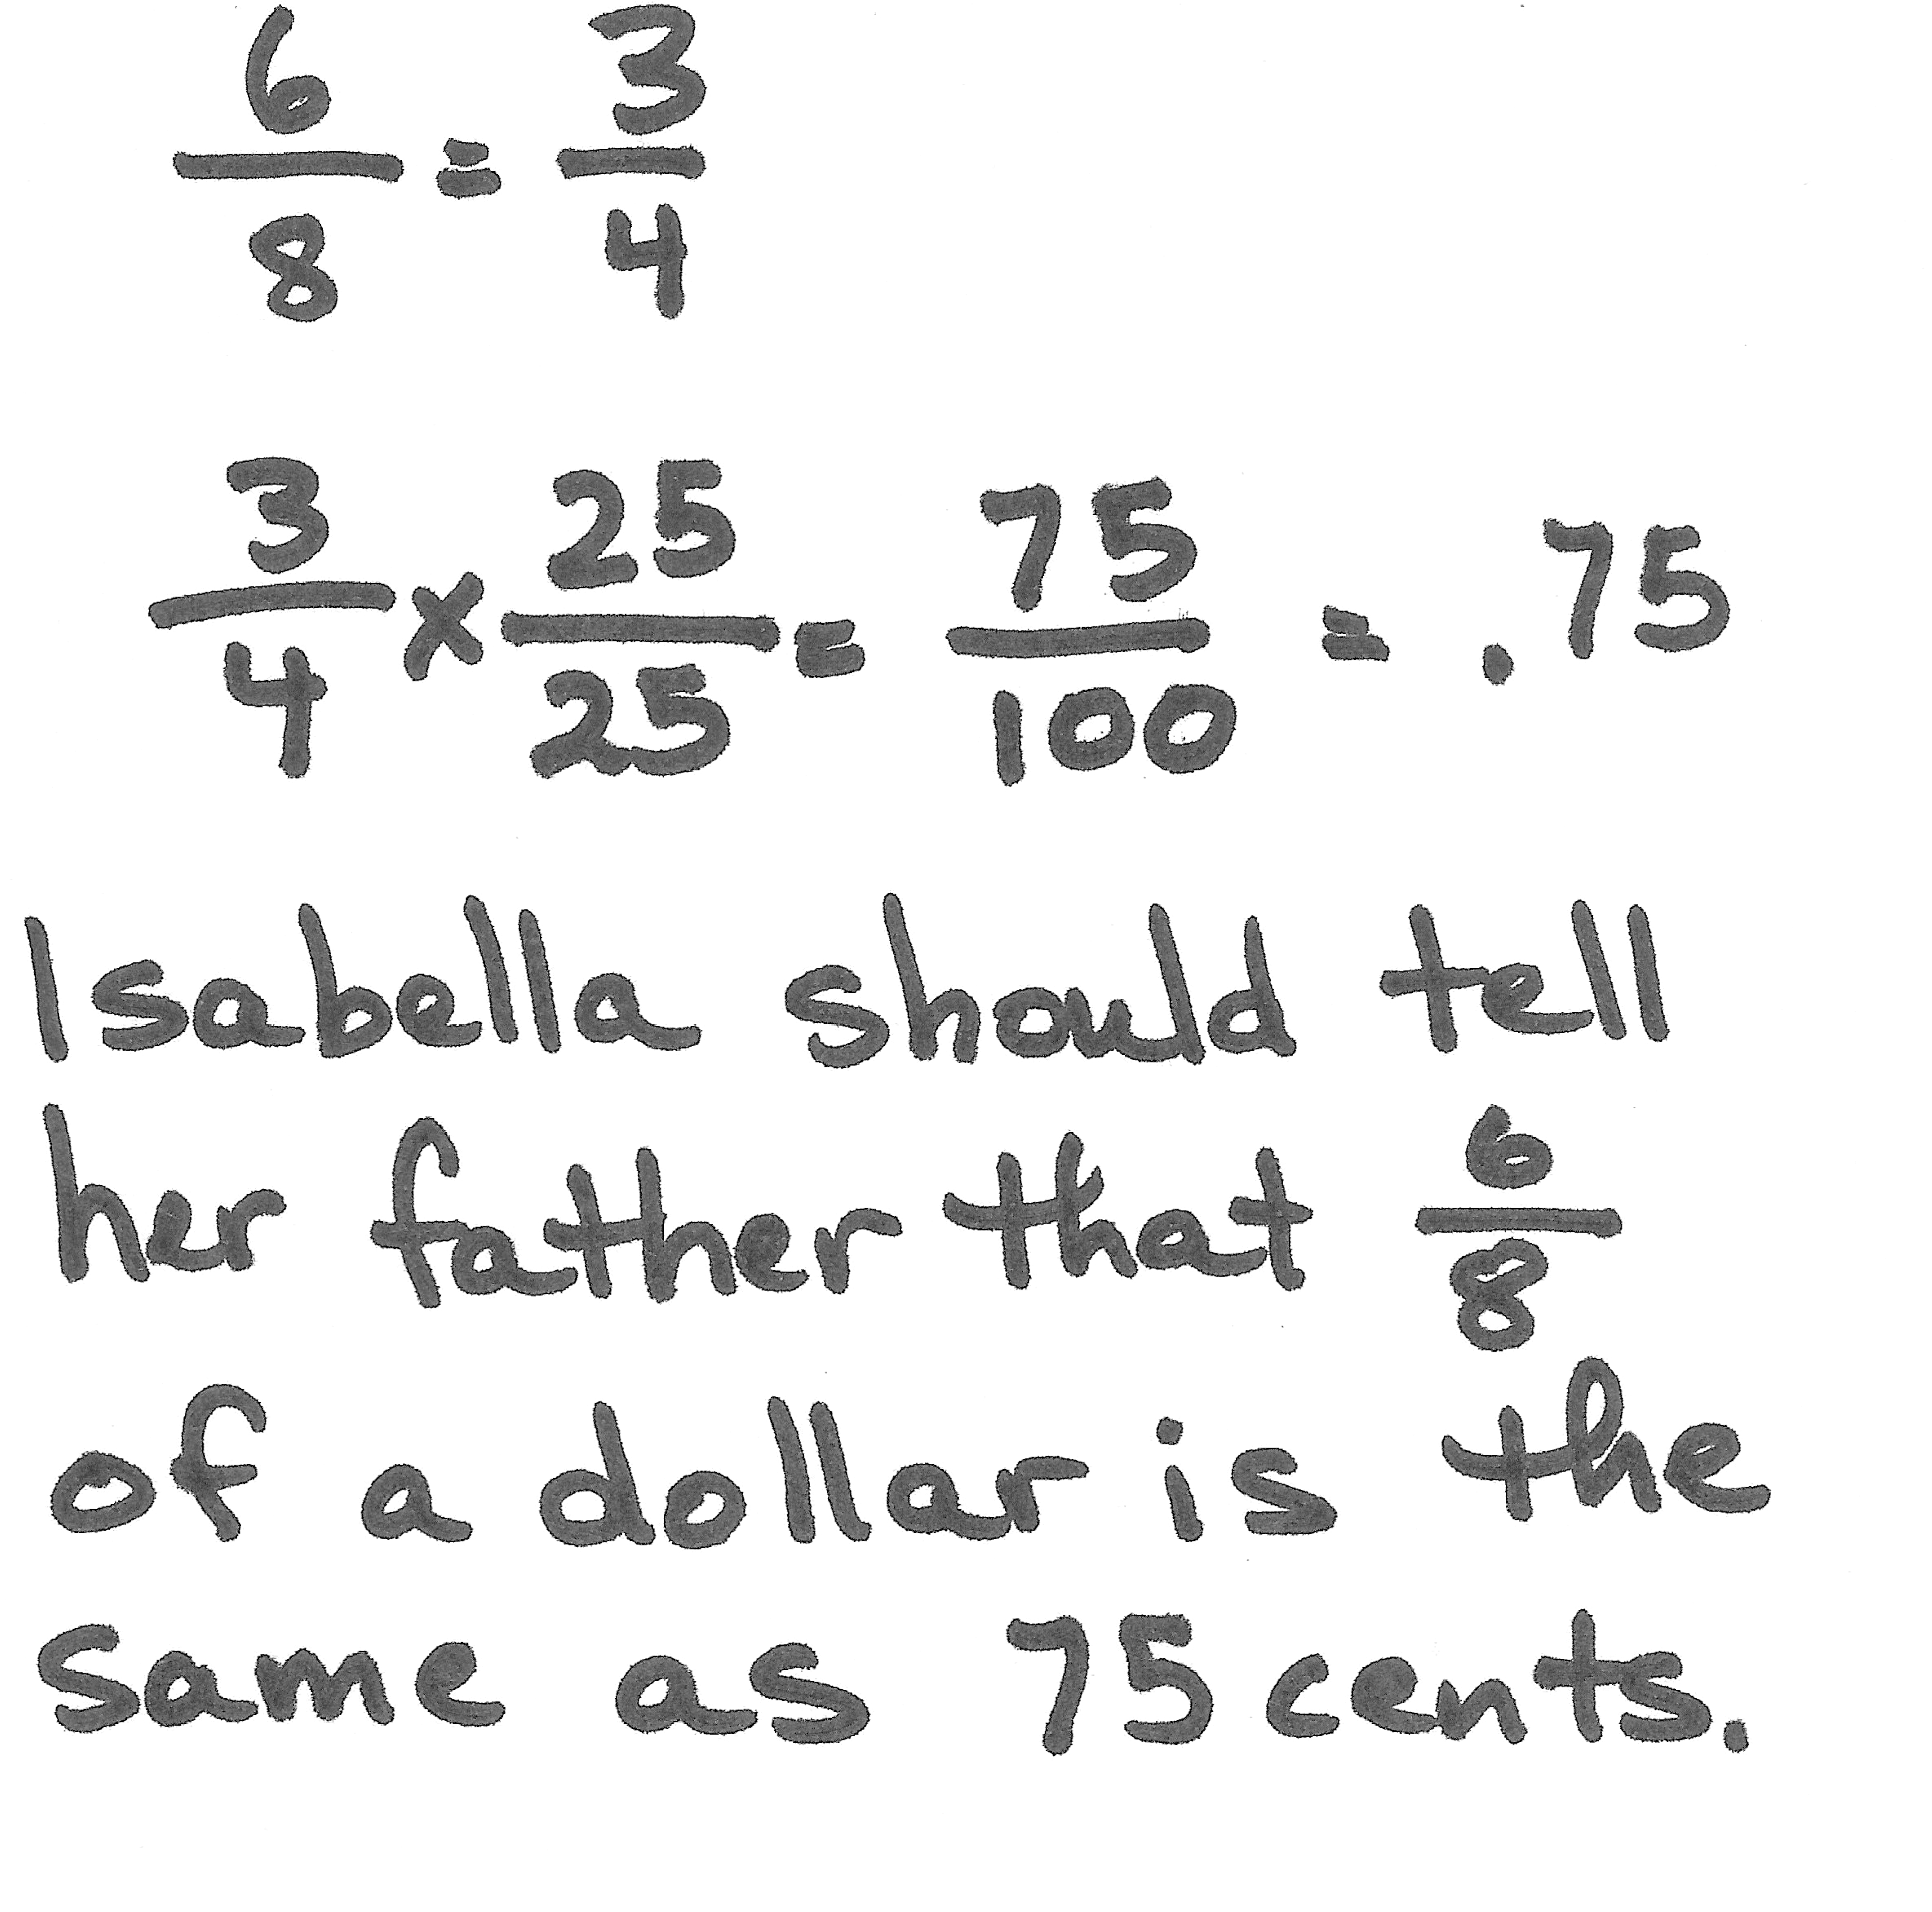 6/8 = 3/4
3/4 x 25/25 = 75/100 = .75
Isabella should tell
her father that 6/8
of a dollar is the
same as 75 cents.